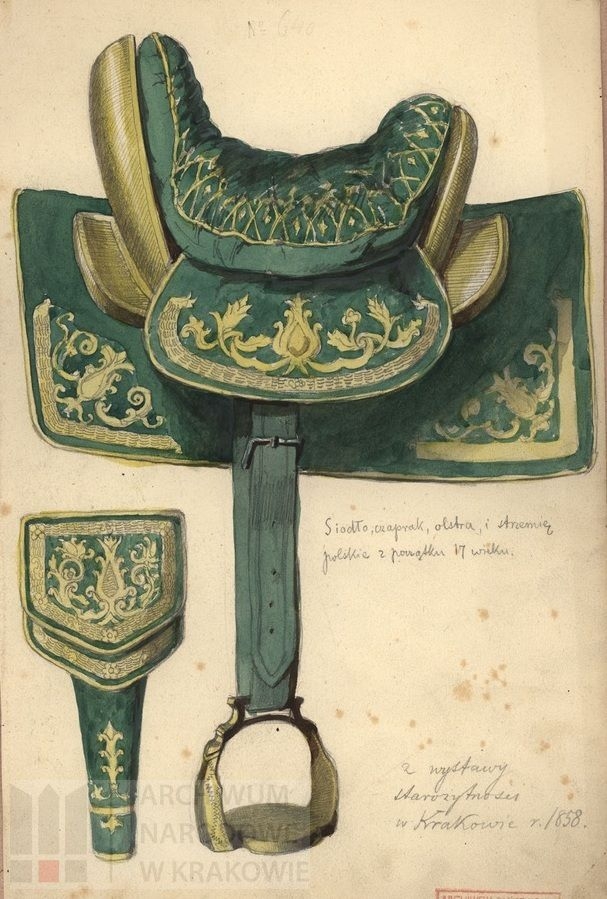 № 640
Siodło, czaprak, olstra, i strzemię
polskie z początku 17 wieku.
z wystawy
starożytności
w Krakowie r. 1858.
ARCHIWUM
NARODOWE
W KRAKOWIE